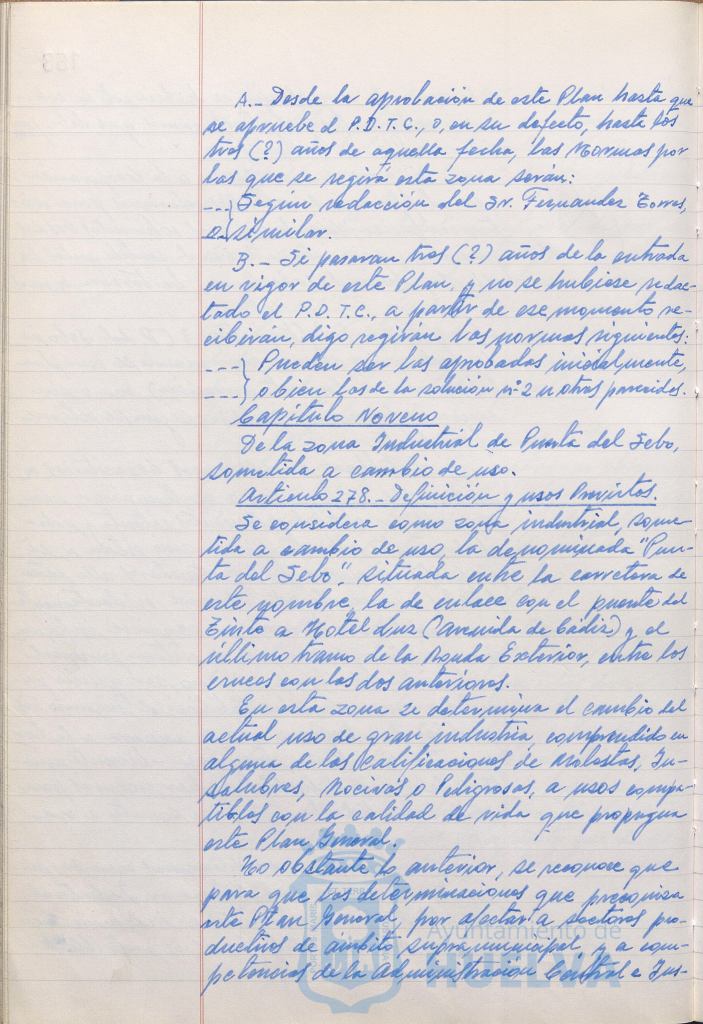 A.- Desde la aprobación de este Plan hasta que
se apruebe el P.D.T.C., o, en su defecto, hasta los
tres (?) años de aquella fecha, las Normas por
las que se regirá esta zona serán:
---} Segun redacción del Sr. Fernandez Torres,
o similar.
B.- Si pasaran tres (?) años de la entrada
en vigor de este Plan, y no se hubiese redac-
tado el P.D.T.C., a partir de ese momento re-
cibirán, digo regirán las normas siguientes:
---} Pueden ser las aprobadas inicialmente,
---} o bien las de la solución nº 2 u otras parecidas.
Capítulo Noveno
De la zona Industrial de Punta del Sebo,
sometida a cambio de uso.
Artículo 278.- Definición y usos Previstos.
Se considera como zona industrial, some-
tida a cambio de uso, la denominada "Pun-
ta del Sebo", situada entre la carretera de
este nombre, la de enlace con el puente del
Tinto a Hotel Luz (Avenida de Cádiz) y el
último tramo de la Ronda Exterior, entre los
cruces con las dos anteriores.
En esta zona se determina el cambio del
actual uso de gran industria, comprendido en
alguna de las calificaciones de Molestas, In-
salubres, Nocivas o Peligrosas, a usos compa-
tibles con la calidad de vida que propugna
este Plan General.
No obstante lo anterior, se reconoce que
para que las determinaciones que preconiza
este Plan General, por afectar a sectores pro-
ductivos de ámbito supramunicipal y a com-
petencias de la Administración Central e Ins-
Ayuntamiento de
HUELVA